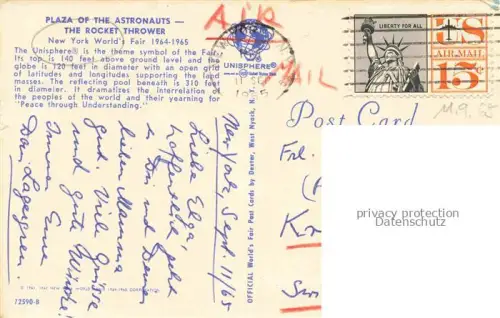 PLAZA OF THE ASTRONAUTS —
THE ROCKET THROWER
New York World's Fair 1964-1965
The Unisphere® is the theme symbol of the Fair.
Its top is 140 feet above ground level and the
globe is 120 feet in diameter with an open grid
of latitudes and longitudes supporting the land
masses. The reflecting pool beneath is 310 feet
in diameter. It dramatizes the interrelation of
the peoples of the world and their yearning for
"Peace through Understanding."
UNISPHERE®
Air
MAIL
LIBERTY FOR ALL
US
AIR MAIL
15c
New York, Sept. 11/65
Liebe Elga,
hoffentlich geht
es Dir und Deiner
lieben Mamma
gut. Viele Grüsse
und gute Wünsche!
Immer Eure
Dan Lagergren.
OFFICIAL World's Fair Post Cards by Dexter, West Nyack, N.Y.
Post Card
Frl.
72590-B
privacy protection
Datenschutz